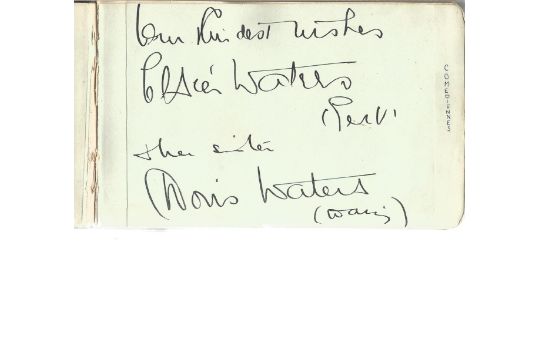 Our kindest wishes
Elsie Waters
(Gert)
& her sister
Doris Waters
(Daisy)
COMEDIENNES